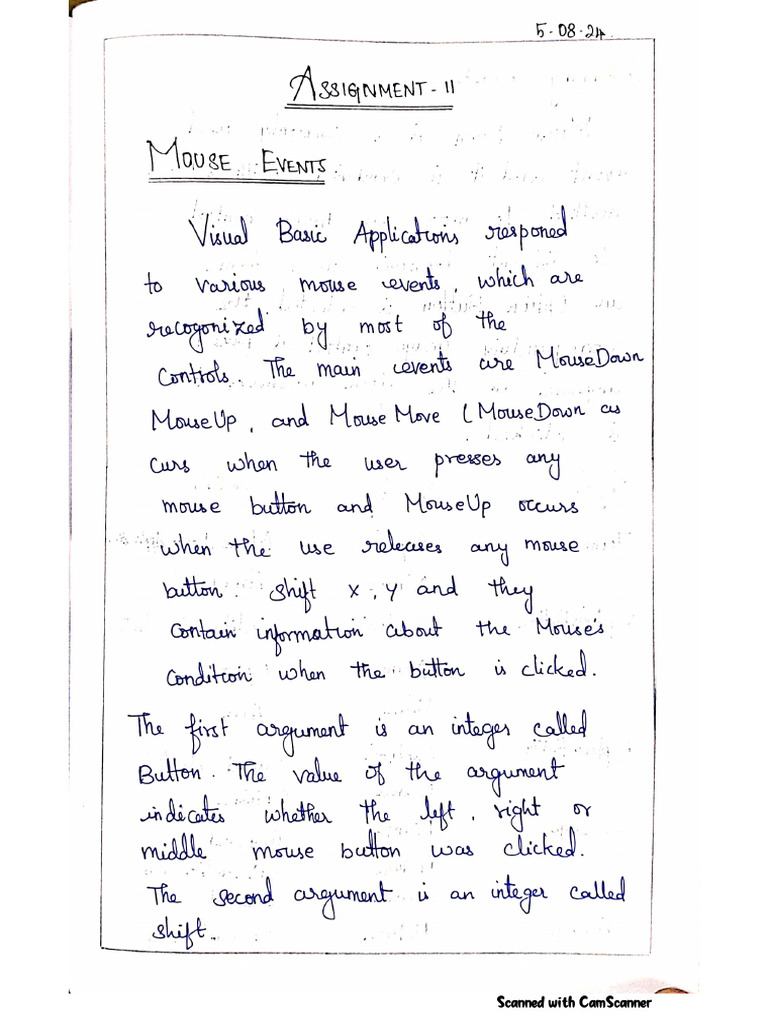 5-08-24.
ASSIGNMENT - II
MOUSE EVENTS.
Visual Basic Applications responed
to various mouse events, which are
recogonized by most of the
Controls. The main events are MouseDown
MouseUp, and MouseMove (MouseDown as
curs when the user presses any
mouse button and MouseUp occurs
when the use releases any mouse
button. Shift x, y and they
Contain information about the Mouse's
Condition when the button is clicked.
The first argument is an integer called
Button. The value of the argument
indicates whether the left, right or
middle mouse button was clicked.
The second argument is an integer called
shift.
Scanned with CamScanner